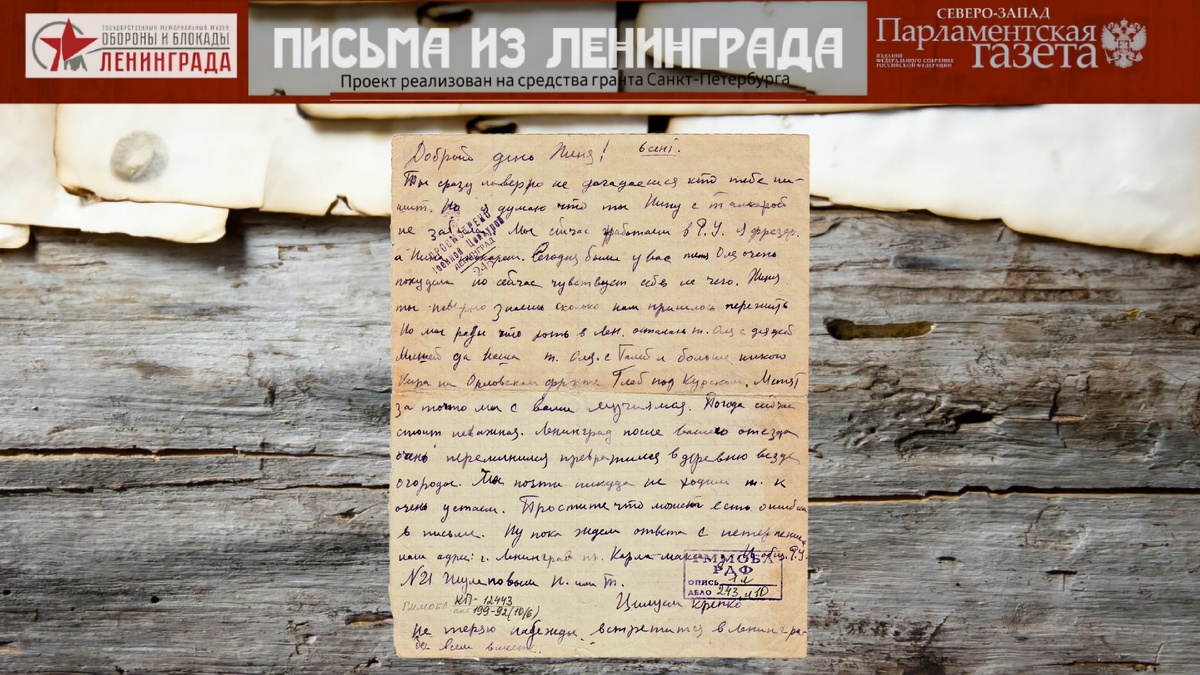 ГОСУДАРСТВЕННЫЙ МЕМОРИАЛЬНЫЙ МУЗЕЙ
ОБОРОНЫ И БЛОКАДЫ
ЛЕНИНГРАДА
ПИСЬМА ИЗ ЛЕНИНГРАДА
Проект реализован на средства гранта Санкт-Петербурга
СЕВЕРО-ЗАПАД
Парламентская
газета
ИЗДАНИЕ
ФЕДЕРАЛЬНОГО СОБРАНИЯ
РОССИЙСКОЙ ФЕДЕРАЦИИ
Добрый день Женя! 6 сент.
Ты сразу наверно не догадаешся кто тебе пи-
шит. Но я думаю что ты Нину с Тамарой
не Мы сейчас работаем в Р.У. Я фрезер.
а Нина Сегодня были у вас тетя Оля очень
похудела но сейчас чувствует себя не чего. Женя
ты наверно знаешь сколько нам пришлось пережить
Но мы рады что хоть в Лен. осталась т. Оля с дядей
Мишей да наша т. Оля с и больше никого
на Орловском фронте Глеб под Курском. Мстят
за то что мы с вами мучаимся. Погода сейчас
стоит неважная. Ленинград после вашего отезда
очень переминился превратился в деревню везде
огороды. Мы почти никуда не ходим т. к
очень устаем. Простите что может есть ошибки
в письме. Ну пока ждем ответа с нетерпением
наш адрес: г. Ленинград пр. Карла Макса общ. Р.У.
№21 Шулеповым Н. или Т.
Цилуем крепко
Не теряю надежды встретится в Ленингра-
де всем вместе.
ПРОСМОТРЕНО
Военной Цензурой
ЛЕНИНГРАД
ГММОБЛ
РДФ
ОПИСЬ 1л
ДЕЛО 243, л 10
ГММОБЛ КП-12443
199-92(10/6)